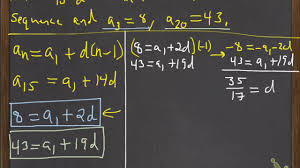 Sequence and a₃ = 8, a₂₀ = 43.
aₙ = a₁ + d(n-1)
a₁₅ = a₁ + 14d
8 = a₁ + 2d
43 = a₁ + 19d
(8 = a₁ + 2d)(-1)
43 = a₁ + 19d
-8 = -a₁ - 2d
43 = a₁ + 19d
35/17 = d